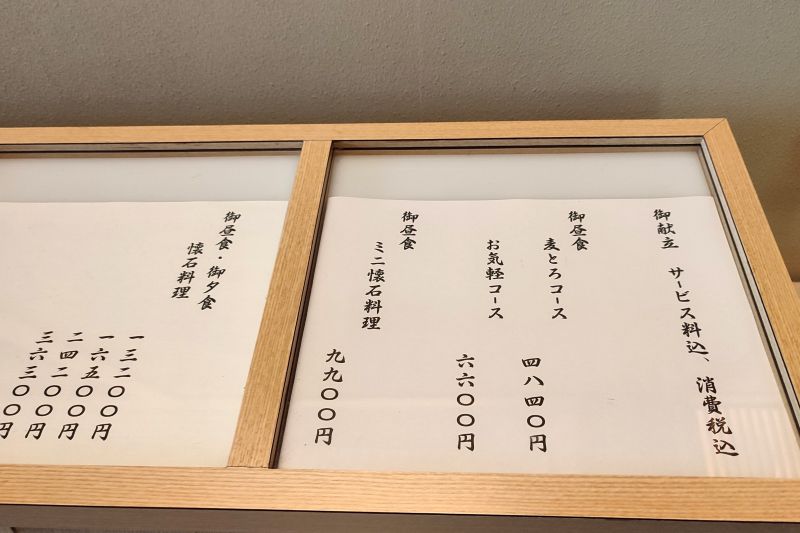 御献立　サービス料込、消費税込
御昼食
麦とろコース　四八四〇円
お気軽コース　六六〇〇円
御昼食
ミニ懐石料理　九九〇〇円
御昼食・御夕食
懐石料理
一三二〇〇円
一六五〇〇円
二四二〇〇円
三六三〇〇円